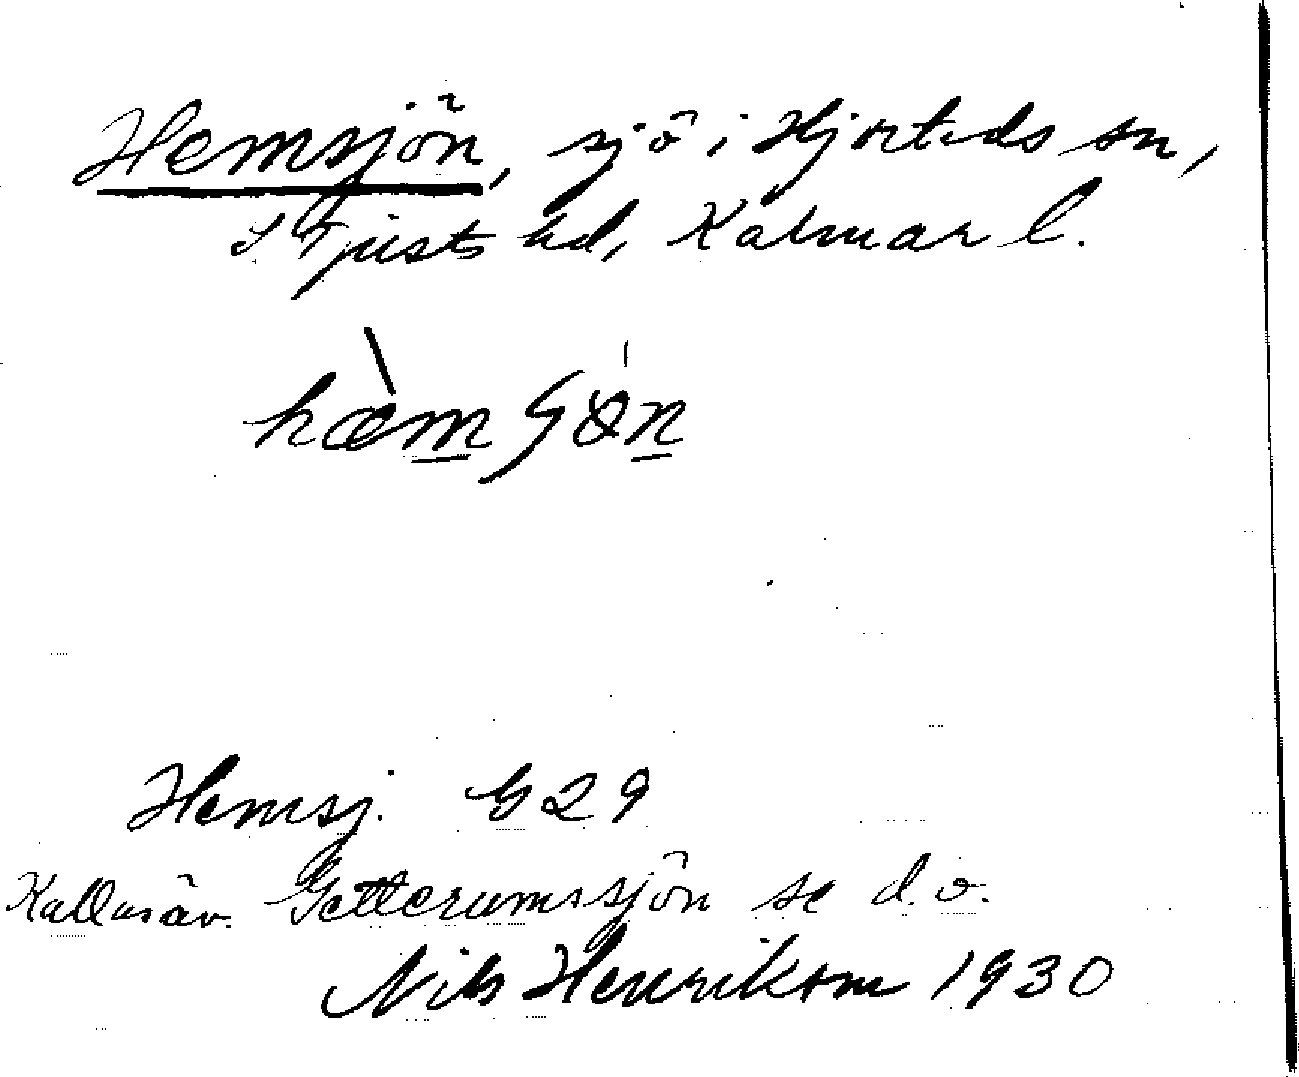 Hemsjön, sjö i Hjorteds sn,
S Tjusts hd, Kalmar l.
hæ̀mʃön
Hemsj. G 29
Kallas äv. Getterumssjön se d.o.
Nils Henrikson 1930